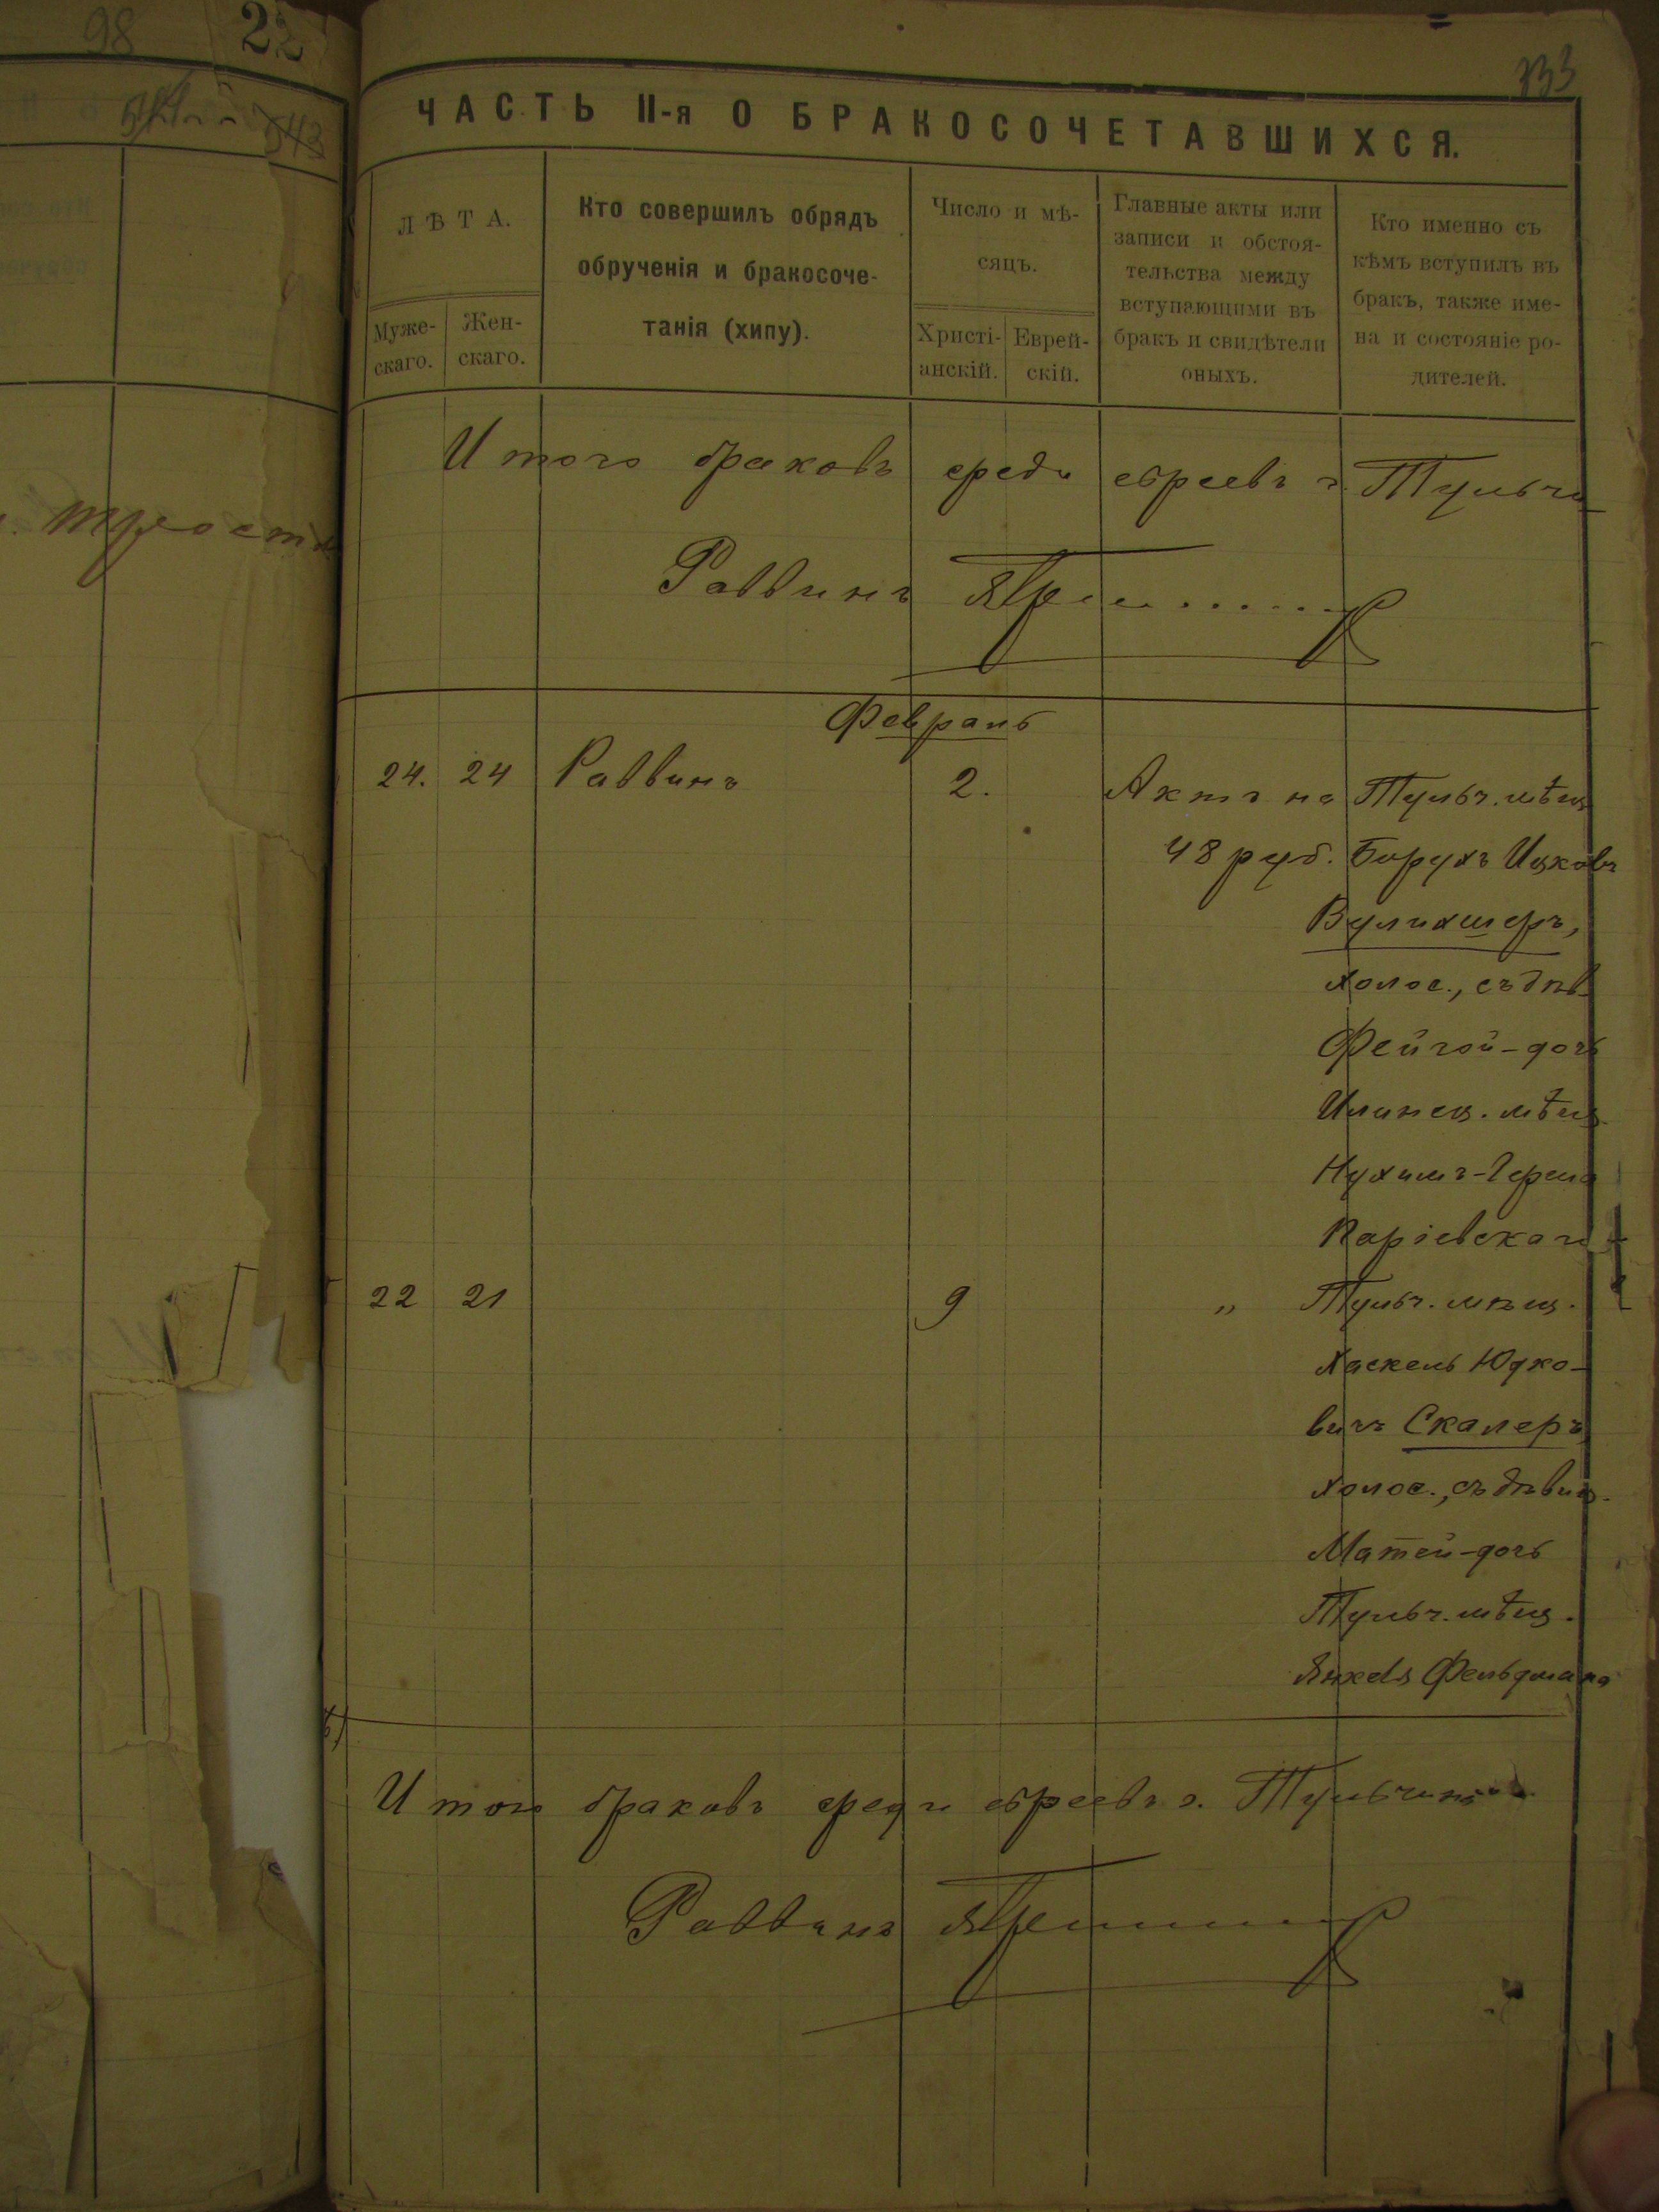 98
22
543
трость
333
ЧАСТЬ II-я О БРАКОСОЧЕТАВШИХСЯ.
ЛѢТА.
Муже-
скаго.
Жен-
скаго.
Кто совершилъ обрядъ
обрученія и бракосоче-
танія (хипу).
Число и мѣ-
сяцъ.
Христі-
анскій.
Еврей-
скій.
Главные акты или
записи и обстоя-
тельства между
вступающими въ
бракъ и свидѣтели
оныхъ.
Кто именно съ
кѣмъ вступилъ въ
бракъ, также име-
на и состояніе ро-
дителей.
Итого браковъ среди евреевъ г. Тульчи
Раввинъ
Февраль
24. 24 Раввинъ 2. Актъ на Тульч. мѣщ
48 руб. Борухъ Ицковъ
Вулихшеръ,
холос., съ дѣв
Фейгой-дочь
Илинец. мѣщ.
Нухимъ-Герша
22 21 9 „ Тульч. мѣщ.
Хаскель Юдко-
вичъ Скалеръ,
холос., съ дѣвиц.
Матей-дочь
Тульч. мѣщ.
Янкеля Фельдмана
Итого браковъ среди евреевъ г. Тульчина
Раввинъ